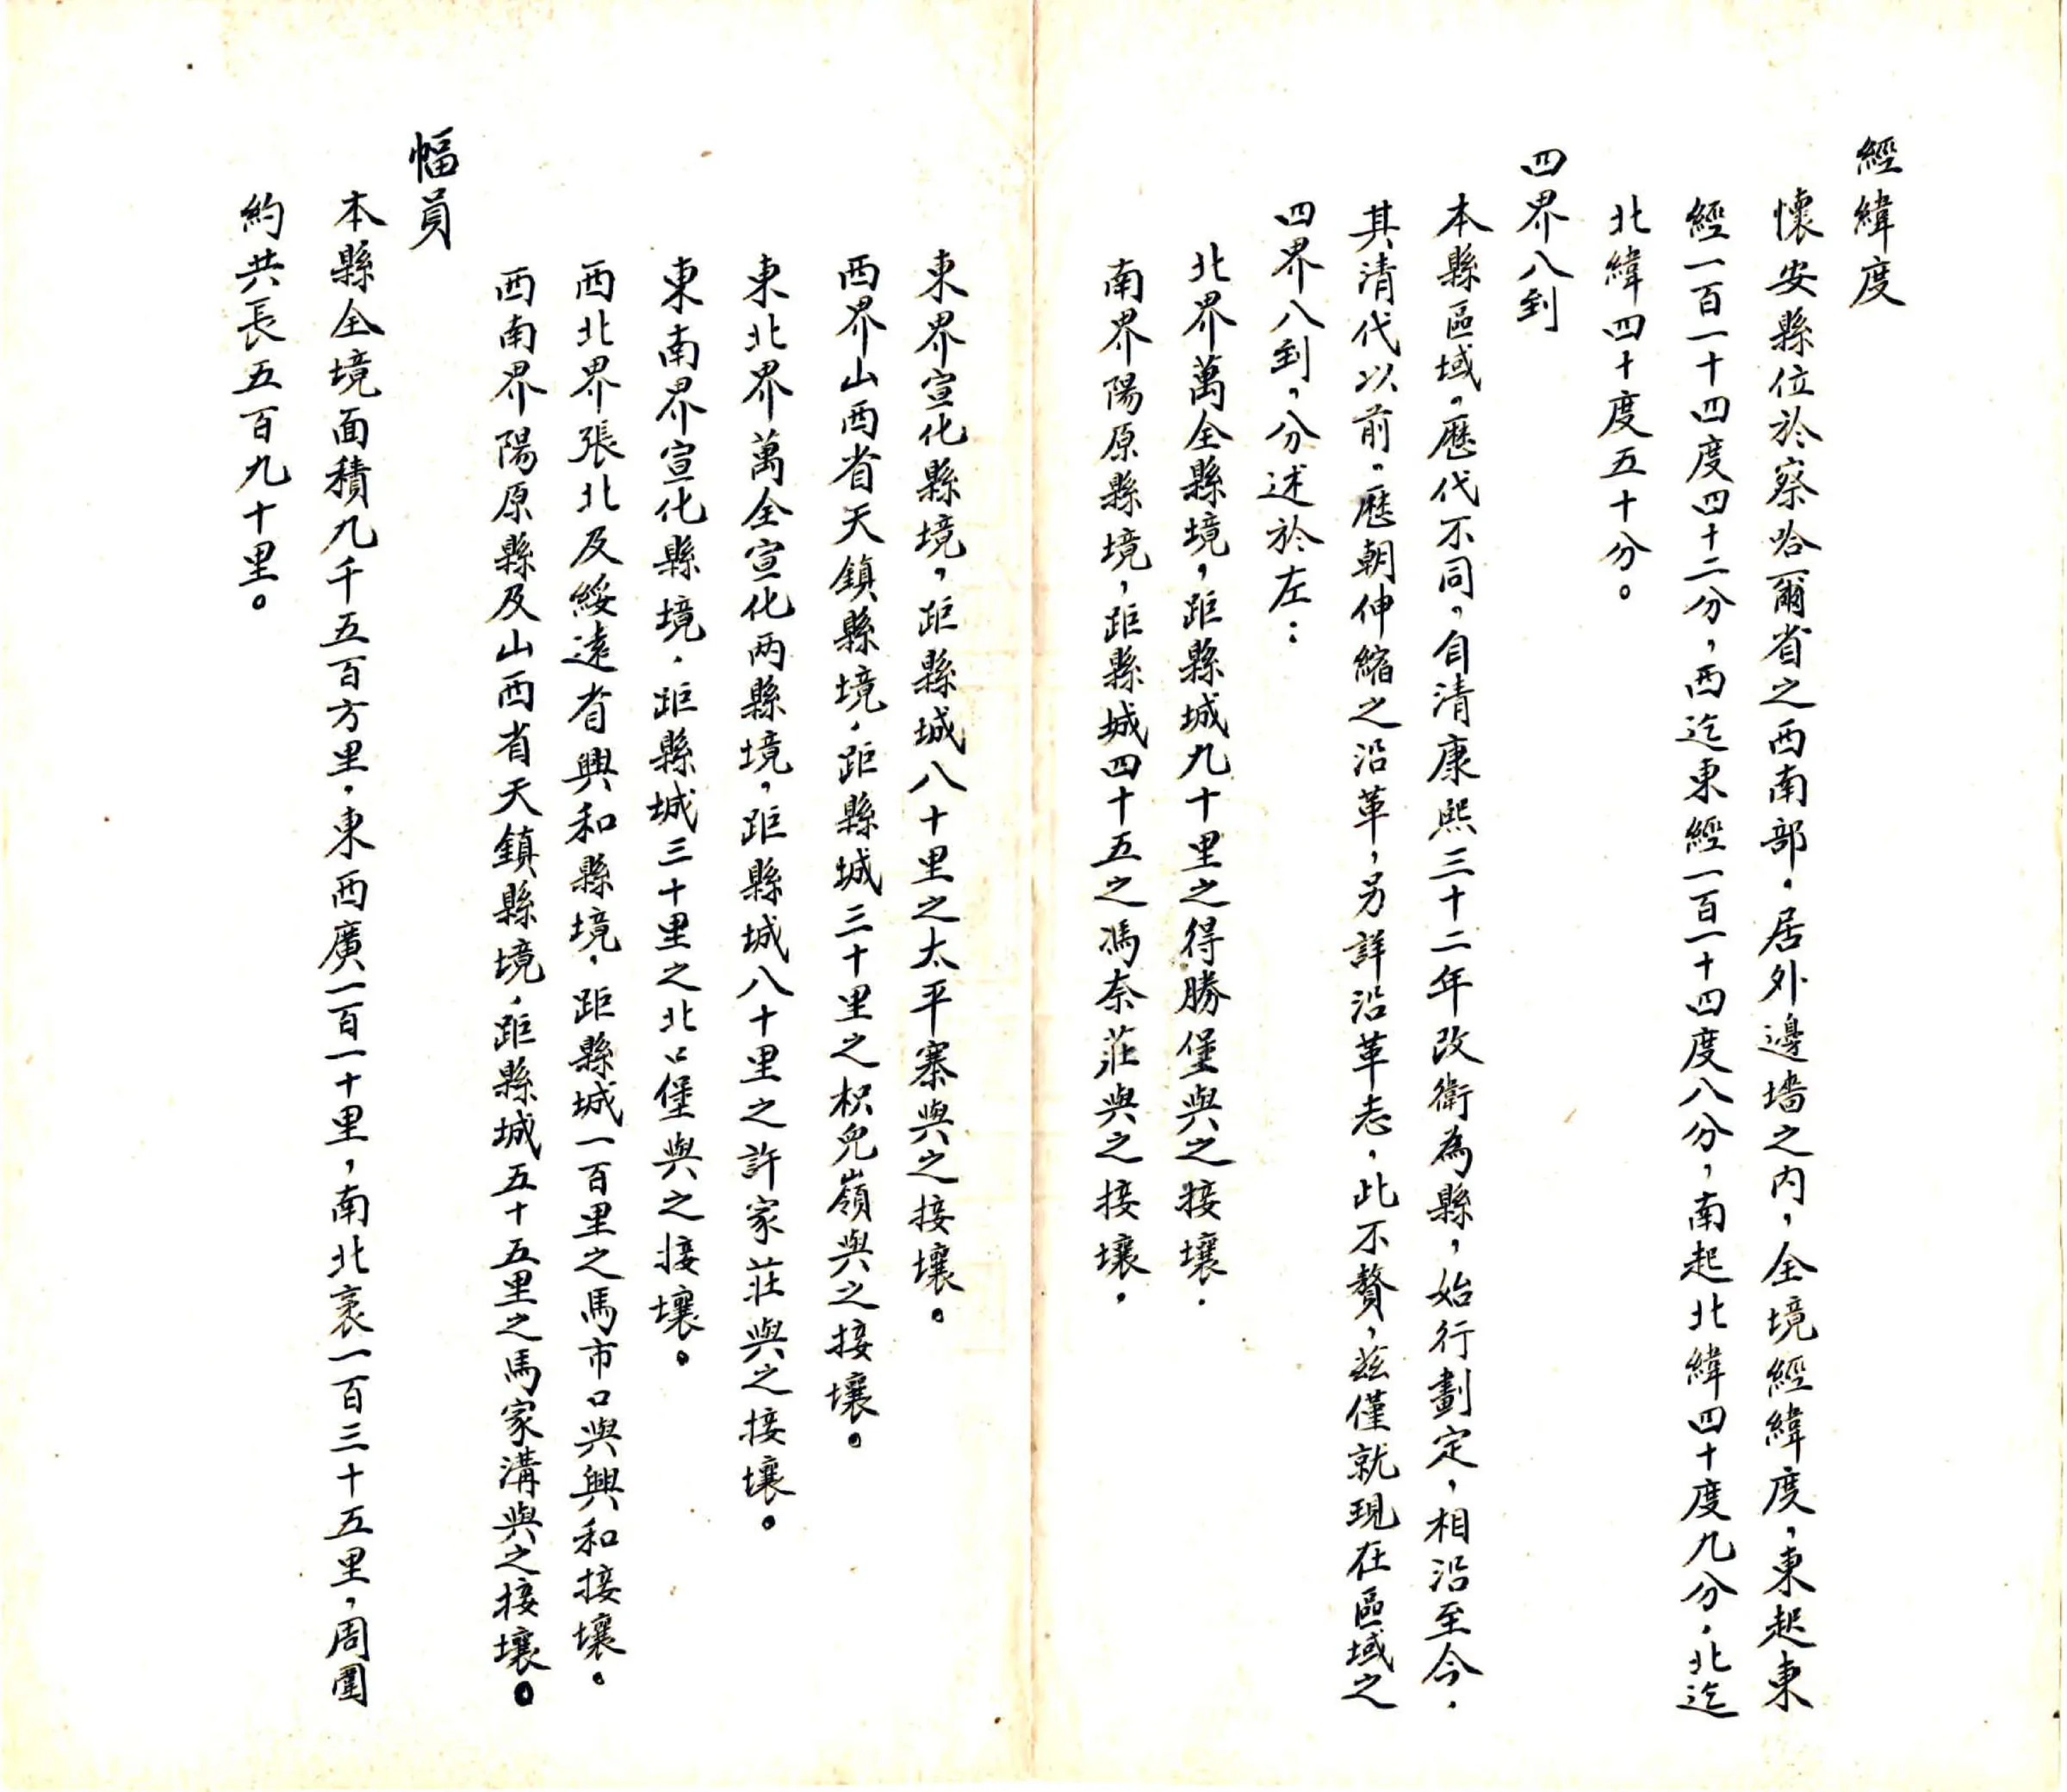 經緯度
懷安縣位於察哈爾省之西南部。居外邊墻之内，全境經緯度，東起東
經一百一十四度四十二分，西迄東經一百一十四度八分，南起北緯四十度九分，北迄
北緯四十度五十分。
四界八到
本縣區域。歷代不同，自清康熙三十二年改衛為縣，始行劃定，相沿至今，
其清代以前。歷朝伸縮之沿革，另詳沿革志，此不贅，茲僅就現在區域之
四界八到，分述於左：
北界萬全縣境，距縣城九十里之得勝堡與之接壤．
南界陽原縣境，距縣城四十五之馮奈莊與之接壤，
東界宣化縣境，距縣城八十里之太平寨與之接壤。
西界山西省天鎮縣境，距縣城三十里之枳兒嶺與之接壤。
東北界萬全宣化两縣境，距縣城八十里之許家莊與之接壤。
東南界宣化縣境．距縣城三十里之北口堡與之接壤。
西北界張北及綏遠省興和縣境，距縣城一百里之馬市口與興和接壤。
西南界陽原縣及山西省天鎮縣境，距縣城五十五里之馬家溝與之接壤。
幅員
本縣全境面積九千五百方里，東西廣一百一十里，南北袤一百三十五里，周圍
約共長五百九十里。